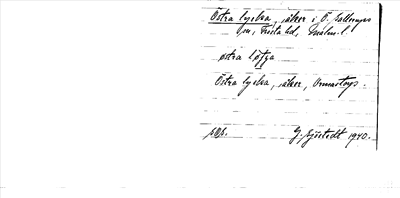 Östra lycka, åker i Ö. Vallerups
sn, Frosta hd, Malm. l.
østra løkja
Östra lycka, åker, Ormastorp.
G. Sjöstedt 1940.